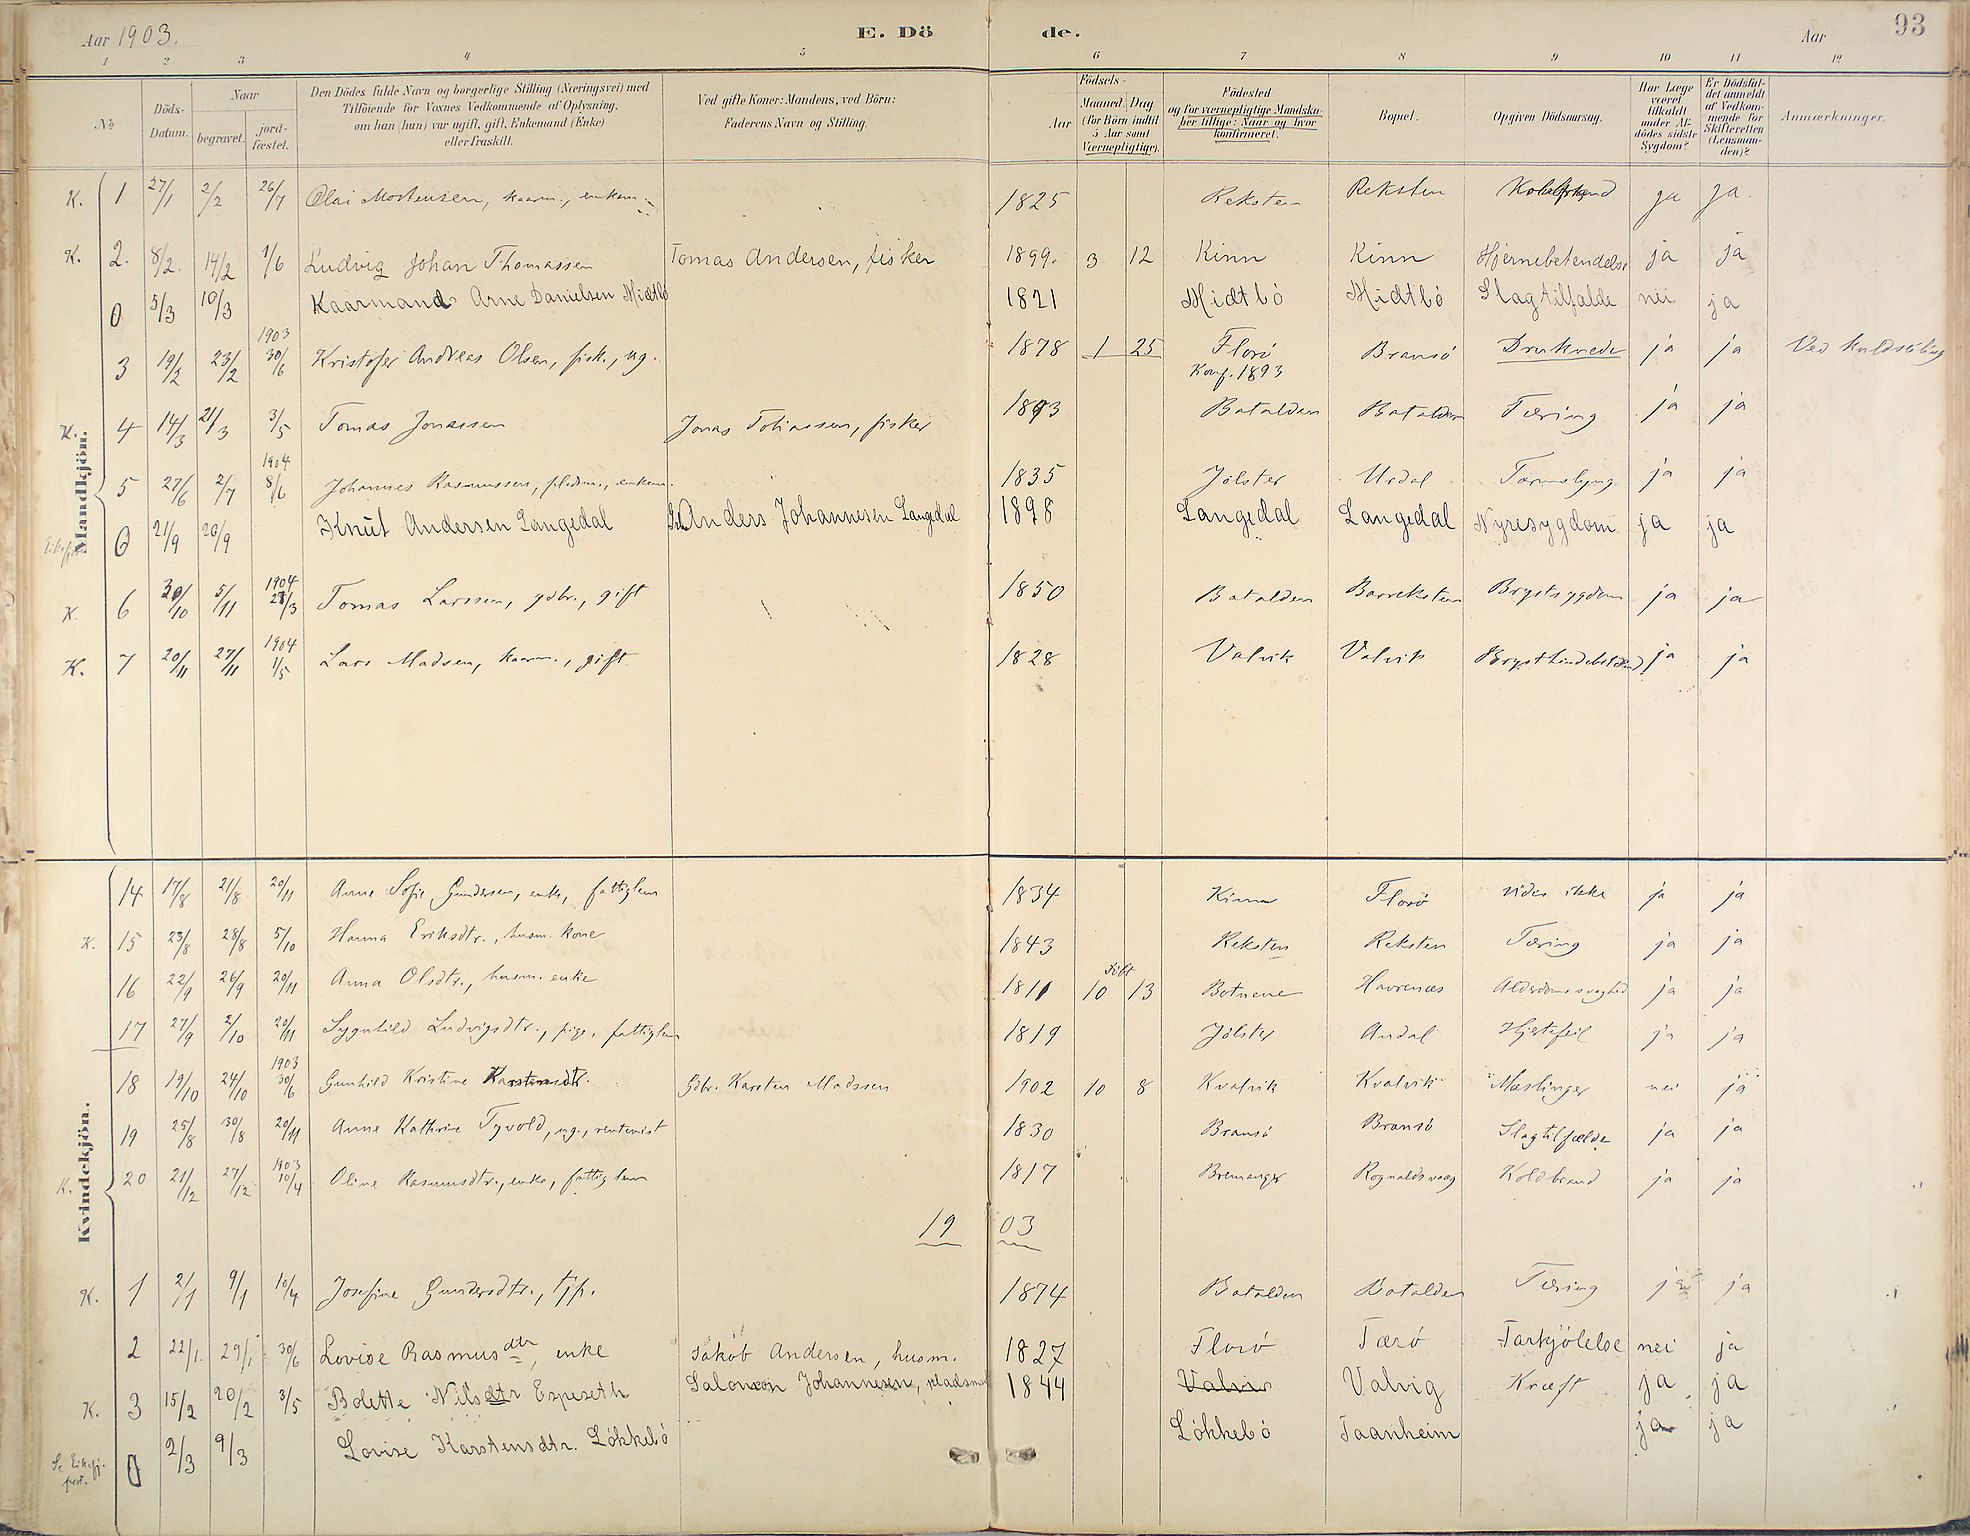 Aar 1903. E. Dö de. Aar 93
1 2 3 4 5 6 7 8 9 10 11 12
No
Döds-Datum.
Naar
begravet.
jord-fæstet.
Den Dödes fulde Navn og borgerlige Stilling (Næringsvei) med
Tilföiende for Voxnes Vedkommende af Oplysning,
om han (hun) var ugift, gift, Enkemand (Enke)
eller fraskilt.
Ved gifte Koner: Mandens, ved Börn:
Faderens Navn og Stilling.
Födsels-
Aar
Maaned. Dag.
(for Börn indtil
5 Aar samt
Værnepligtige).
Födested
og for værnepligtige Mandska-
ber tillige: Naar og hvor
konfirmeret.
Bopæl.
Opgiven Dödsaarsag.
Har Læge
været
tilkaldt
under Af-
dödes sidste
Sygdom?
Er Dödsfal-
det anmeldt
af Vedkom-
mende for
Skifteretten
(Lensman-
den)?
Anmærkninger.
Mandkjön.
K. 1 27/1 2/2 26/7 Olai Mortensen, kaarm., enkem. 1825 Reksten Reksten ja ja.
K. 2. 8/2. 14/2 1/6 Ludvig Johan Thomassen Tomas Andersen, fisker 1899. 3 12 Kinn Kinn Hjernebetendelse ja ja
0 5/3 10/3 Kaarmand Arne Danielsen Midtbö 1821 Midtbö Midtbö Slagtilfælde nei ja
3 19/2 23/2 1903 30/6 Kristofer Andreas Olsen, fisk., ug. 1878 1 25 Florö Konf. 1893 Bransö Druknede ja ja Ved kuldseiling
K. 4 14/3 21/3 3/5 Tomas Jonassen Jonas Tobiassen, fisker 1893 Batalden Batalden Tæring ja ja
5 27/6 2/7 1904 8/6 Johannes Rasmussen, pladsm., enkem. 1835 Jölster Urdal Tarmslyng ja ja
0 21/9 26/9 Knut Andersen Langedal Anders Johannesen Langedal 1898 Langedal Langedal Nyresygdom ja ja
K. 6 30/10 5/11 1904 Tomas Larssen, gdbr., gift 1850 Batalden Barreksten Brystsygdom ja ja
K. 7 20/11 27/11 1904 1/5 Lars Madsen, kaarm., gift. 1828 Valvik Valvik ja ja
Kvindekjön.
14 17/8 21/8 20/11 Anne Sofie Gundersen, enke, fattiglem 1834 Kinn Florö vides ikke ja ja
K. 15 23/8 28/8 5/10 Hanna Eriksdtr., husm. kone 1843 Reksten Reksten Tæring ja ja
16 22/9 26/9 20/11 Anna Olsdtr., husm. enke 1811 döbt 10 13 Botnene Havrenæs Alderdomssvaghed ja ja
17 27/9 2/10 20/11 Sygnhild Ludvigsdtr., pige, fattiglem 1819 Jölster Andal Hjertefeil ja ja
18 19/10 24/10 1903 30/6 Gunhild Kristine Karstensdtr. Gdbr. Karsten Madssen 1902 10 8 Kvalvik Kvalvik Mæslinger nei ja
19 25/8 30/8 20/11 Anne Kathrine Tyvold, ug., rentenist 1830 Bransö Bransö Slagtilfælde ja ja
K. 20 21/12 27/12 1903 10/4 Oline Rasmusdtr., enke, fattiglem 1817 Bremanger Rognaldsvaag Koldbrand ja ja
19 03
K. 1 2/1 9/1 10/4 Josefine Gundersdtr., tjp. 1874 Batalden Batalden Tæring ja ja
2 22/1. 29/1 30/6 Lovise Rasmusdtr, enke Jakob Andersen, husm. 1827 Florö Tærö Forkjölelse nei ja
K. 3 15/2 20/2 3/5 Bolette Nilsdtr Espeseth Salomon Johannesen, pladsm 1844 Valvig Kræft ja ja
Se Eikefj. prot. 0 2/3 9/3 Lovise Karstensdtr. Lökkebö Lökkebö Taanheim ja ja